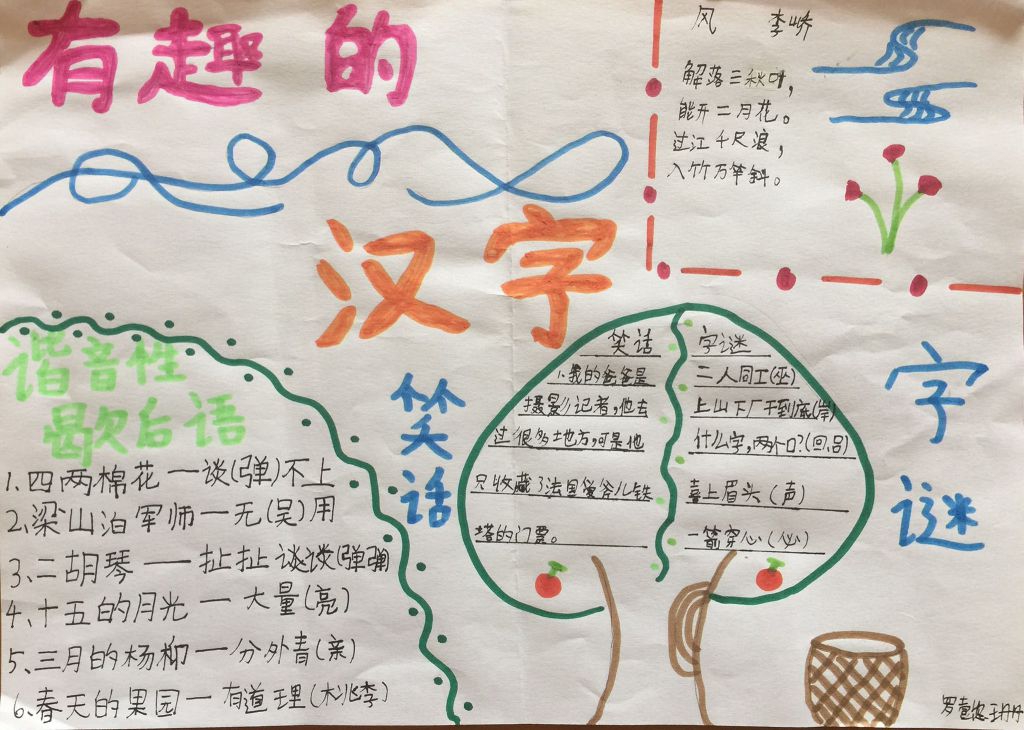 有趣的
汉字
风 李峤
解落三秋叶，
能开二月花。
过江千尺浪，
入竹万竿斜。
谐音性
歇后语
1.四两棉花一谈(弹)不上
2、梁山泊军师一无(吴)用
3、二胡琴一扯扯谈谈(弹弹
4、十五的月光一大量(亮)
5、三月的杨柳一分外青(亲)
6、春天的果园一有道理(桃李)
笑话
笑话
1.我的爸爸是
摄影记者，他去
过很多地方，可是他
只收藏了法国爱爷儿铁
塔的门票。
字谜
二人同工(巫)
上山下厂干到底(岸)
什么字，两个口？(回.吕)
喜上眉头（声）
一箭穿心（必）
字谜